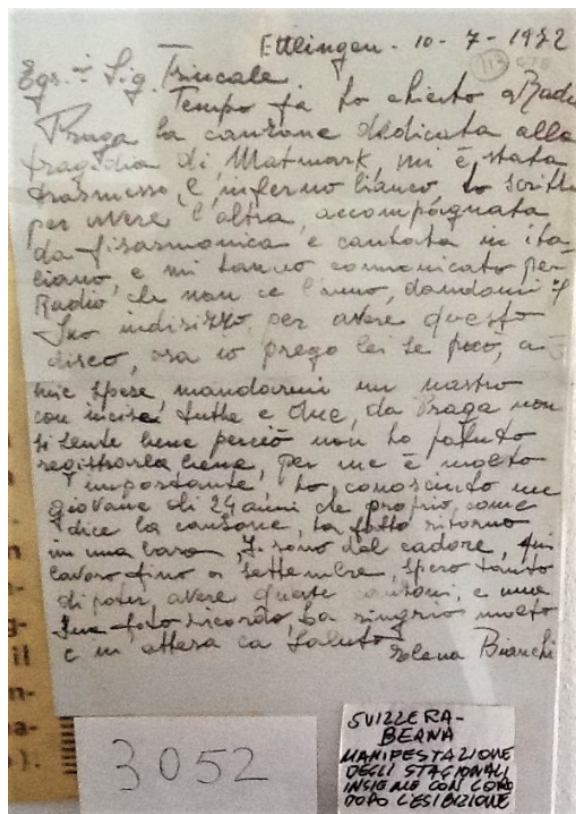 Ettlingen - 10 - 7 - 1972
113
Egr. Sig. Trincale.
Tempo fa ho chiesto a Radio
Praga la canzone dedicata alla
tragedia di Matmark, mi è stata
trasmesso, l'inferno bianco, ho scritto
per avere l'altra, accompagnata
da fisarmonica e cantata in ita-
liano, e mi hanno comunicato per
Radio che non ce l'anno, dandomi il
Suo indirizzo per avere questo
disco, ora io prego lei se può, a
mie spese, mandarmi un nastro
con incise tutte e due, da Praga non
si sente bene perciò non ho potuto
registrarla bene, per me è molto
importante ho conosciuto un
giovane di 24 anni che proprio, come
dice la canzone, ha fatto ritorno
in una bara, I. sono dal cadore, qui
lavoro fino a settembre, spero tanto
di poter avere queste canzoni, e una
Sua foto ricordo, La ringrazio molto
e in attesa La Saluto
Bianchi
il
n-
a-
).
3052
SVIZZERA-
BERNA
MANIFESTAZIONE
DEGLI STAGIONALI
INSIEME CON LORO
DOPO L'ESIBIZIONE